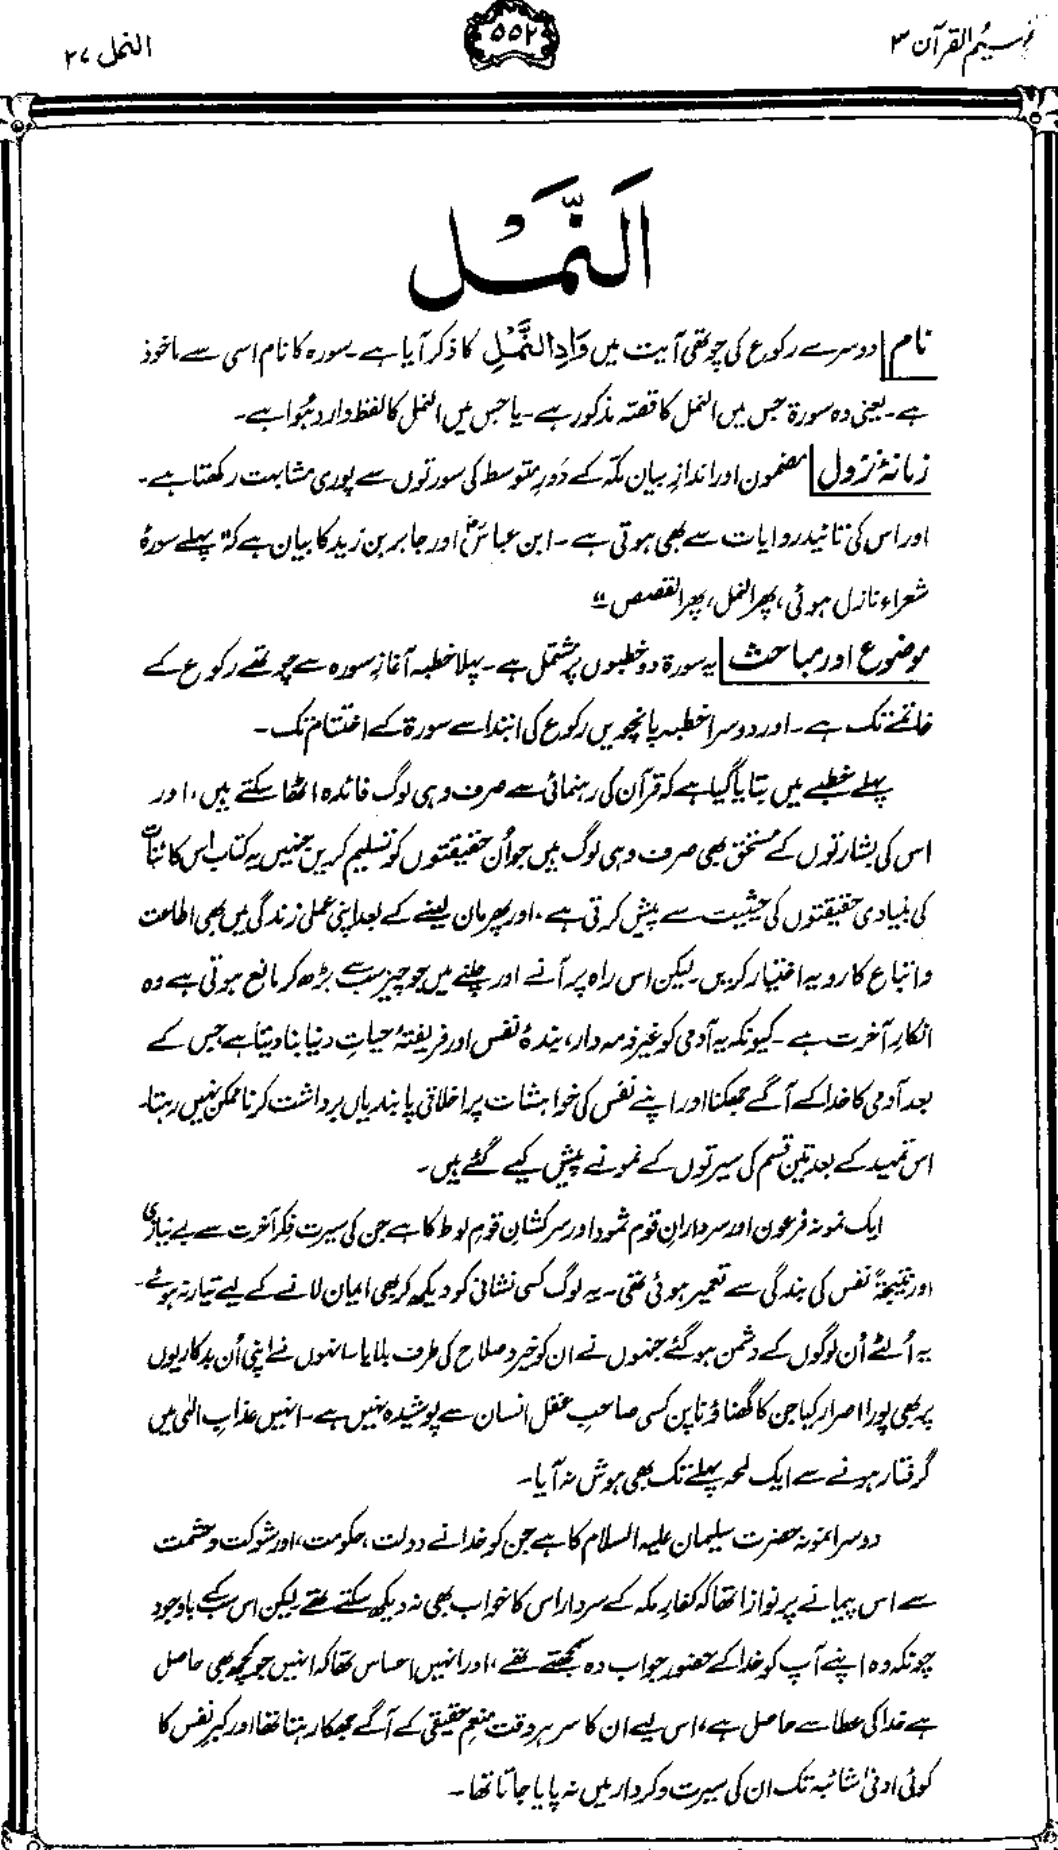 تفہیم القرآن ۳
۵۵۲
النمل ۲۷
اَلنَّمْل
نام دوسرے رکوع کی چوتھی آیت میں وَادِ النَّمْلِ کا ذکر آیا ہے۔ سورہ کا نام اسی سے ماخوذ
ہے۔ یعنی وہ سورۃ جس میں النمل کا قصّہ مذکور ہے۔ یا جس میں النمل کا لفظ وارد ہُوا ہے۔
زمانۂ نزول مضمون اور اندازِ بیان مکّہ کے دَورِ متوسط کی سورتوں سے پوری مشابہت رکھتا ہے۔
اور اس کی تائید روایات سے بھی ہوتی ہے۔ ابن عباسؓ اور جابر بن زید کا بیان ہے کہ "پہلے سورۂ
شعراء نازل ہوئی، پھر النمل، پھر القصص"۔
موضوع اور مباحث یہ سورۃ دو خطبوں پر مشتمل ہے۔ پہلا خطبہ آغازِ سورہ سے چوتھے رکوع کے
خاتمے تک ہے۔ اور دوسرا خطبہ پانچویں رکوع کی ابتدا سے سورۃ کے اختتام تک۔
پہلے خطبے میں بتایا گیا ہے کہ قرآن کی رہنمائی سے صرف وہی لوگ فائدہ اٹھا سکتے ہیں، اور
اس کی بشارتوں کے مستحق بھی صرف وہی لوگ ہیں جو اُن حقیقتوں کو تسلیم کریں جنہیں یہ کتاب اس کائنات
کی بنیادی حقیقتوں کی حیثیت سے پیش کرتی ہے، اور پھر مان لینے کے بعد اپنی عملی زندگی میں بھی اطاعت
و اتباع کا رویہ اختیار کریں۔ لیکن اس راہ پر آنے اور چلنے میں جو چیز سب سے بڑھ کر مانع ہوتی ہے وہ
انکارِ آخرت ہے۔ کیونکہ یہ آدمی کو غیر ذمہ دار، بندۂ نفس اور فریفتۂ حیاتِ دنیا بنا دیتا ہے جس کے
بعد آدمی کا خدا کے آگے جھکنا اور اپنے نفس کی خواہشات پر اخلاقی پابندیاں برداشت کرنا ممکن نہیں رہتا۔
اس تمہید کے بعد تین قسم کی سیرتوں کے نمونے پیش کیے گئے ہیں۔
ایک نمونہ فرعون اور سردارانِ قوم ثمود اور سرکشانِ قومِ لوط کا ہے جن کی سیرت فکرِ آخرت سے بے نیازی
اور نتیجۃً نفس کی بندگی سے تعمیر ہوئی تھی۔ یہ لوگ کسی نشانی کو دیکھ کر بھی ایمان لانے کے لیے تیار نہ ہوئے۔
یہ اُلٹے اُن لوگوں کے دشمن ہو گئے جنہوں نے ان کو خیر و صلاح کی طرف بلایا۔ انہوں نے اپنی اُن بدکاریوں
پر بھی پورا اصرار کیا جن کا گھناؤنا پن کسی صاحبِ عقل انسان سے پوشیدہ نہیں ہے۔ انہیں عذابِ الٰہی میں
گرفتار ہونے سے ایک لمحہ پہلے تک بھی ہوش نہ آیا۔
دوسرا نمونہ حضرت سلیمان علیہ السلام کا ہے جن کو خدا نے دولت، حکومت، اور شوکت و حشمت
سے اس پیمانے پر نوازا تھا کہ کفارِ مکہ کے سردار اس کا خواب بھی نہ دیکھ سکتے تھے۔ لیکن اس سب کے باوجود
چونکہ وہ اپنے آپ کو خدا کے حضور جواب دہ سمجھتے تھے، اور انہیں احساس تھا کہ انہیں جو کچھ بھی حاصل
ہے خدا کی عطا سے حاصل ہے، اس لیے ان کا سر ہر وقت منعمِ حقیقی کے آگے جھکا رہتا تھا اور کبرِ نفس کا
کوئی ادنیٰ شائبہ تک ان کی سیرت و کردار میں نہ پایا جاتا تھا۔